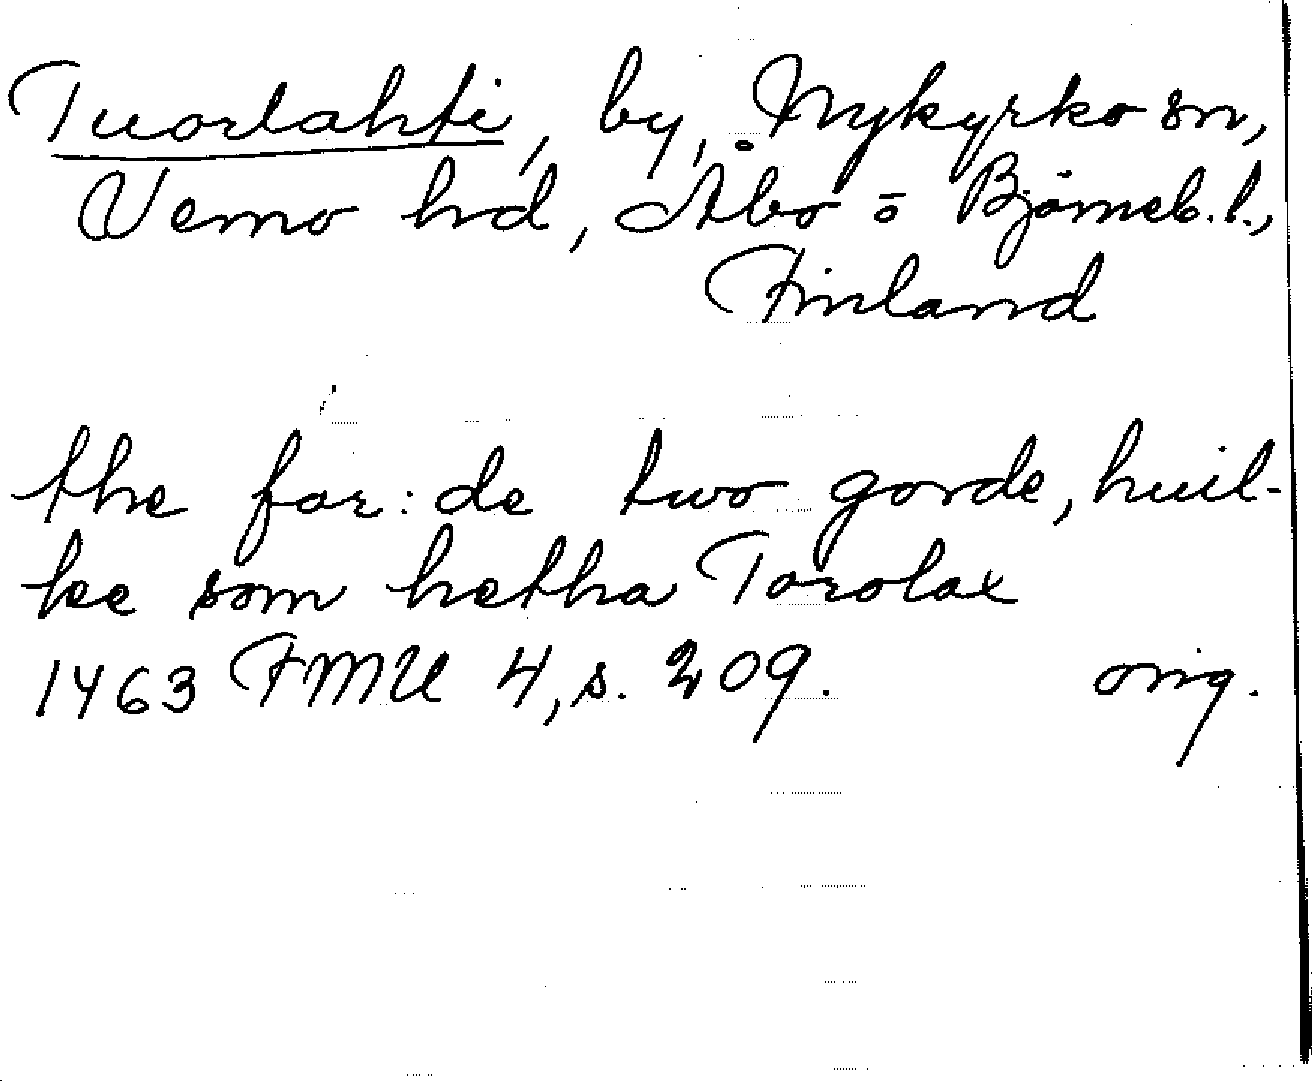 Tuorlahti, by, Nykyrko sn,
Vemo hd, Åbo o Björneb. l.,
Finland
the for:de two gorde, huil-
ke som hetha Torolax
1463 FMU 4, s. 209. orig.